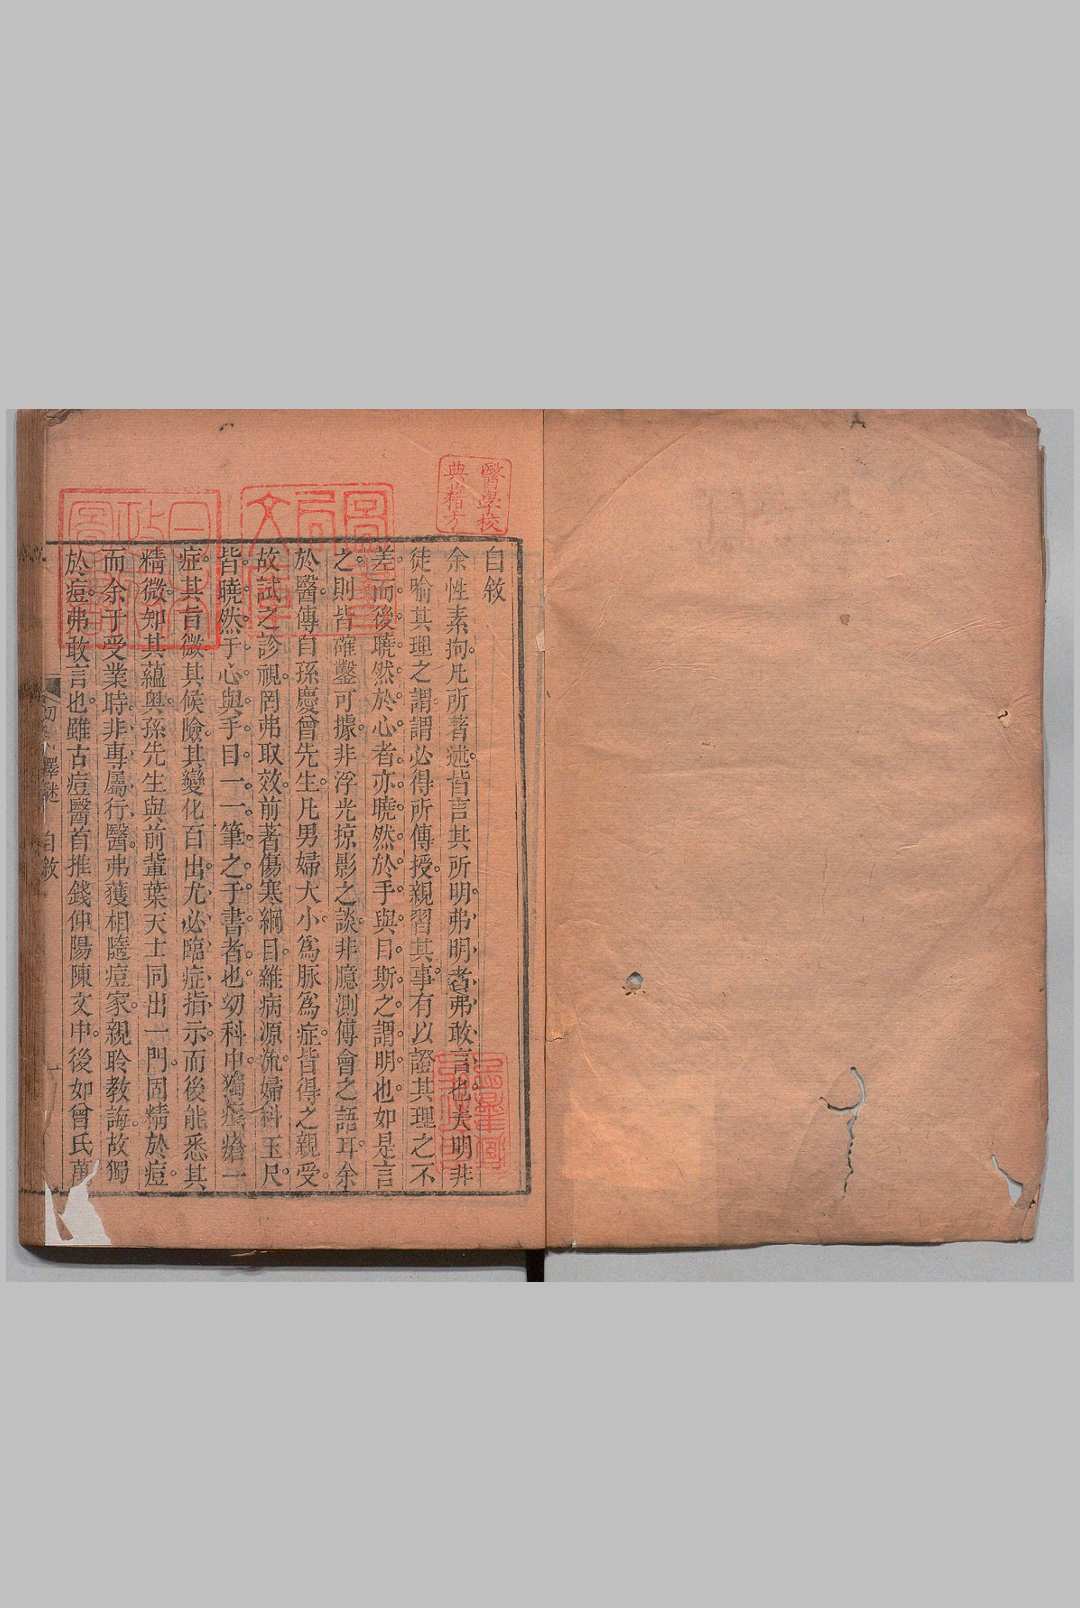 自敘
余性素拘。凡所著述。皆言其所明。弗明者。弗敢言也。夫明非
徒喻其理之謂。謂必得所傳授。親習其事。有以證其理之不
差。而後曉然於心者。亦曉然於手與目。斯之謂明也。如是言
之。則皆確鑿可據。非浮光掠影之談。非臆測傅會之語耳。余
於醫傳自孫慶曾先生。凡男婦大小。為脈為症。皆得之親受。
故試之診視。罔弗取效。前著傷寒綱目。雜病源流。婦科玉尺。
皆曉然于心與手目。一一筆之于書者也。幼科中獨痘瘡一
症。其旨微。其候險。其變化百出。尤必臨症指示。而後能悉其
精微。知其蘊奧。孫先生與前輩葉天士同出一門。固精於痘。
而余于受業時。非專屬行醫。弗獲相隨痘家。親聆教誨。故獨
於痘弗敢言也。雖古痘醫首推錢仲陽陳文中。後如曾氏萬
釋謎 自敘
一
醫學校
典籍方